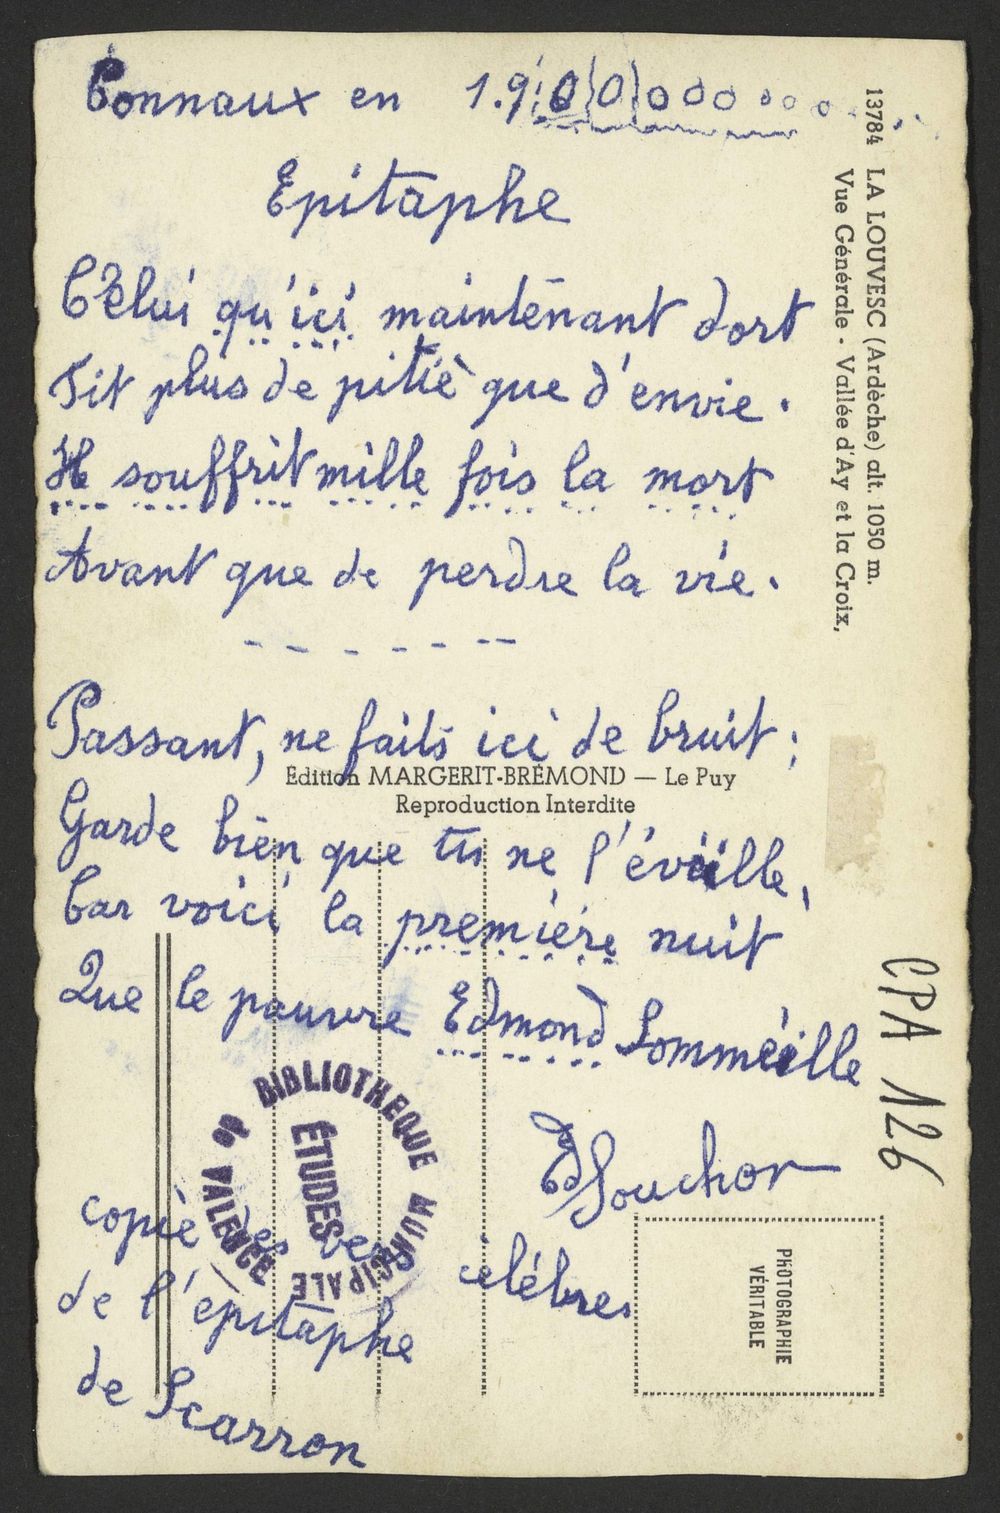 Connaux en 19000000000
Epitaphe
Célui qu'ici maintenant dort
Fit plus de pitié que d'envie.
Il souffrit mille fois la mort
Avant que de perdre la vie.
Passant, ne fails ici de bruit;
Garde bien que tu ne l'éveille,
Car voici la première nuit
Que le pauvre Edmond Sommeille
Souchon
copié des vers célèbres
de l'épitaphe
de Scarron
13784 LA LOUVESC (Ardèche) alt. 1050 m.
Vue Générale - Vallée d'Ay et la Croix,
Edition MARGERIT-BRÉMOND — Le Puy
Reproduction Interdite
CPA 126
BIBLIOTHEQUE MUNICIPALE
de VALENCE
ÉTUDES
PHOTOGRAPHIE
VÉRITABLE